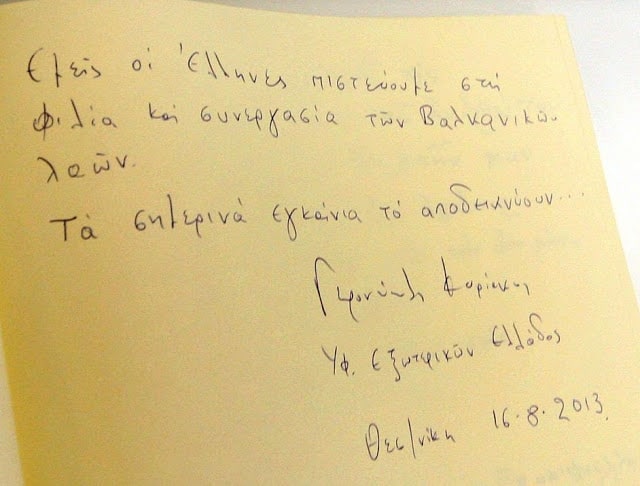 Εμείς οι Έλληνες πιστεύουμε στη
φιλία και συνεργασία τῶν Βαλκανικῶν
λαῶν.
Τά σημερινά εγκαίνια τό αποδεικνύουν...
Γεροντόπουλος Κυριάκος
Υφ. Εξωτερικῶν Ελλάδος
Θεσ/νίκη 16.8.2013